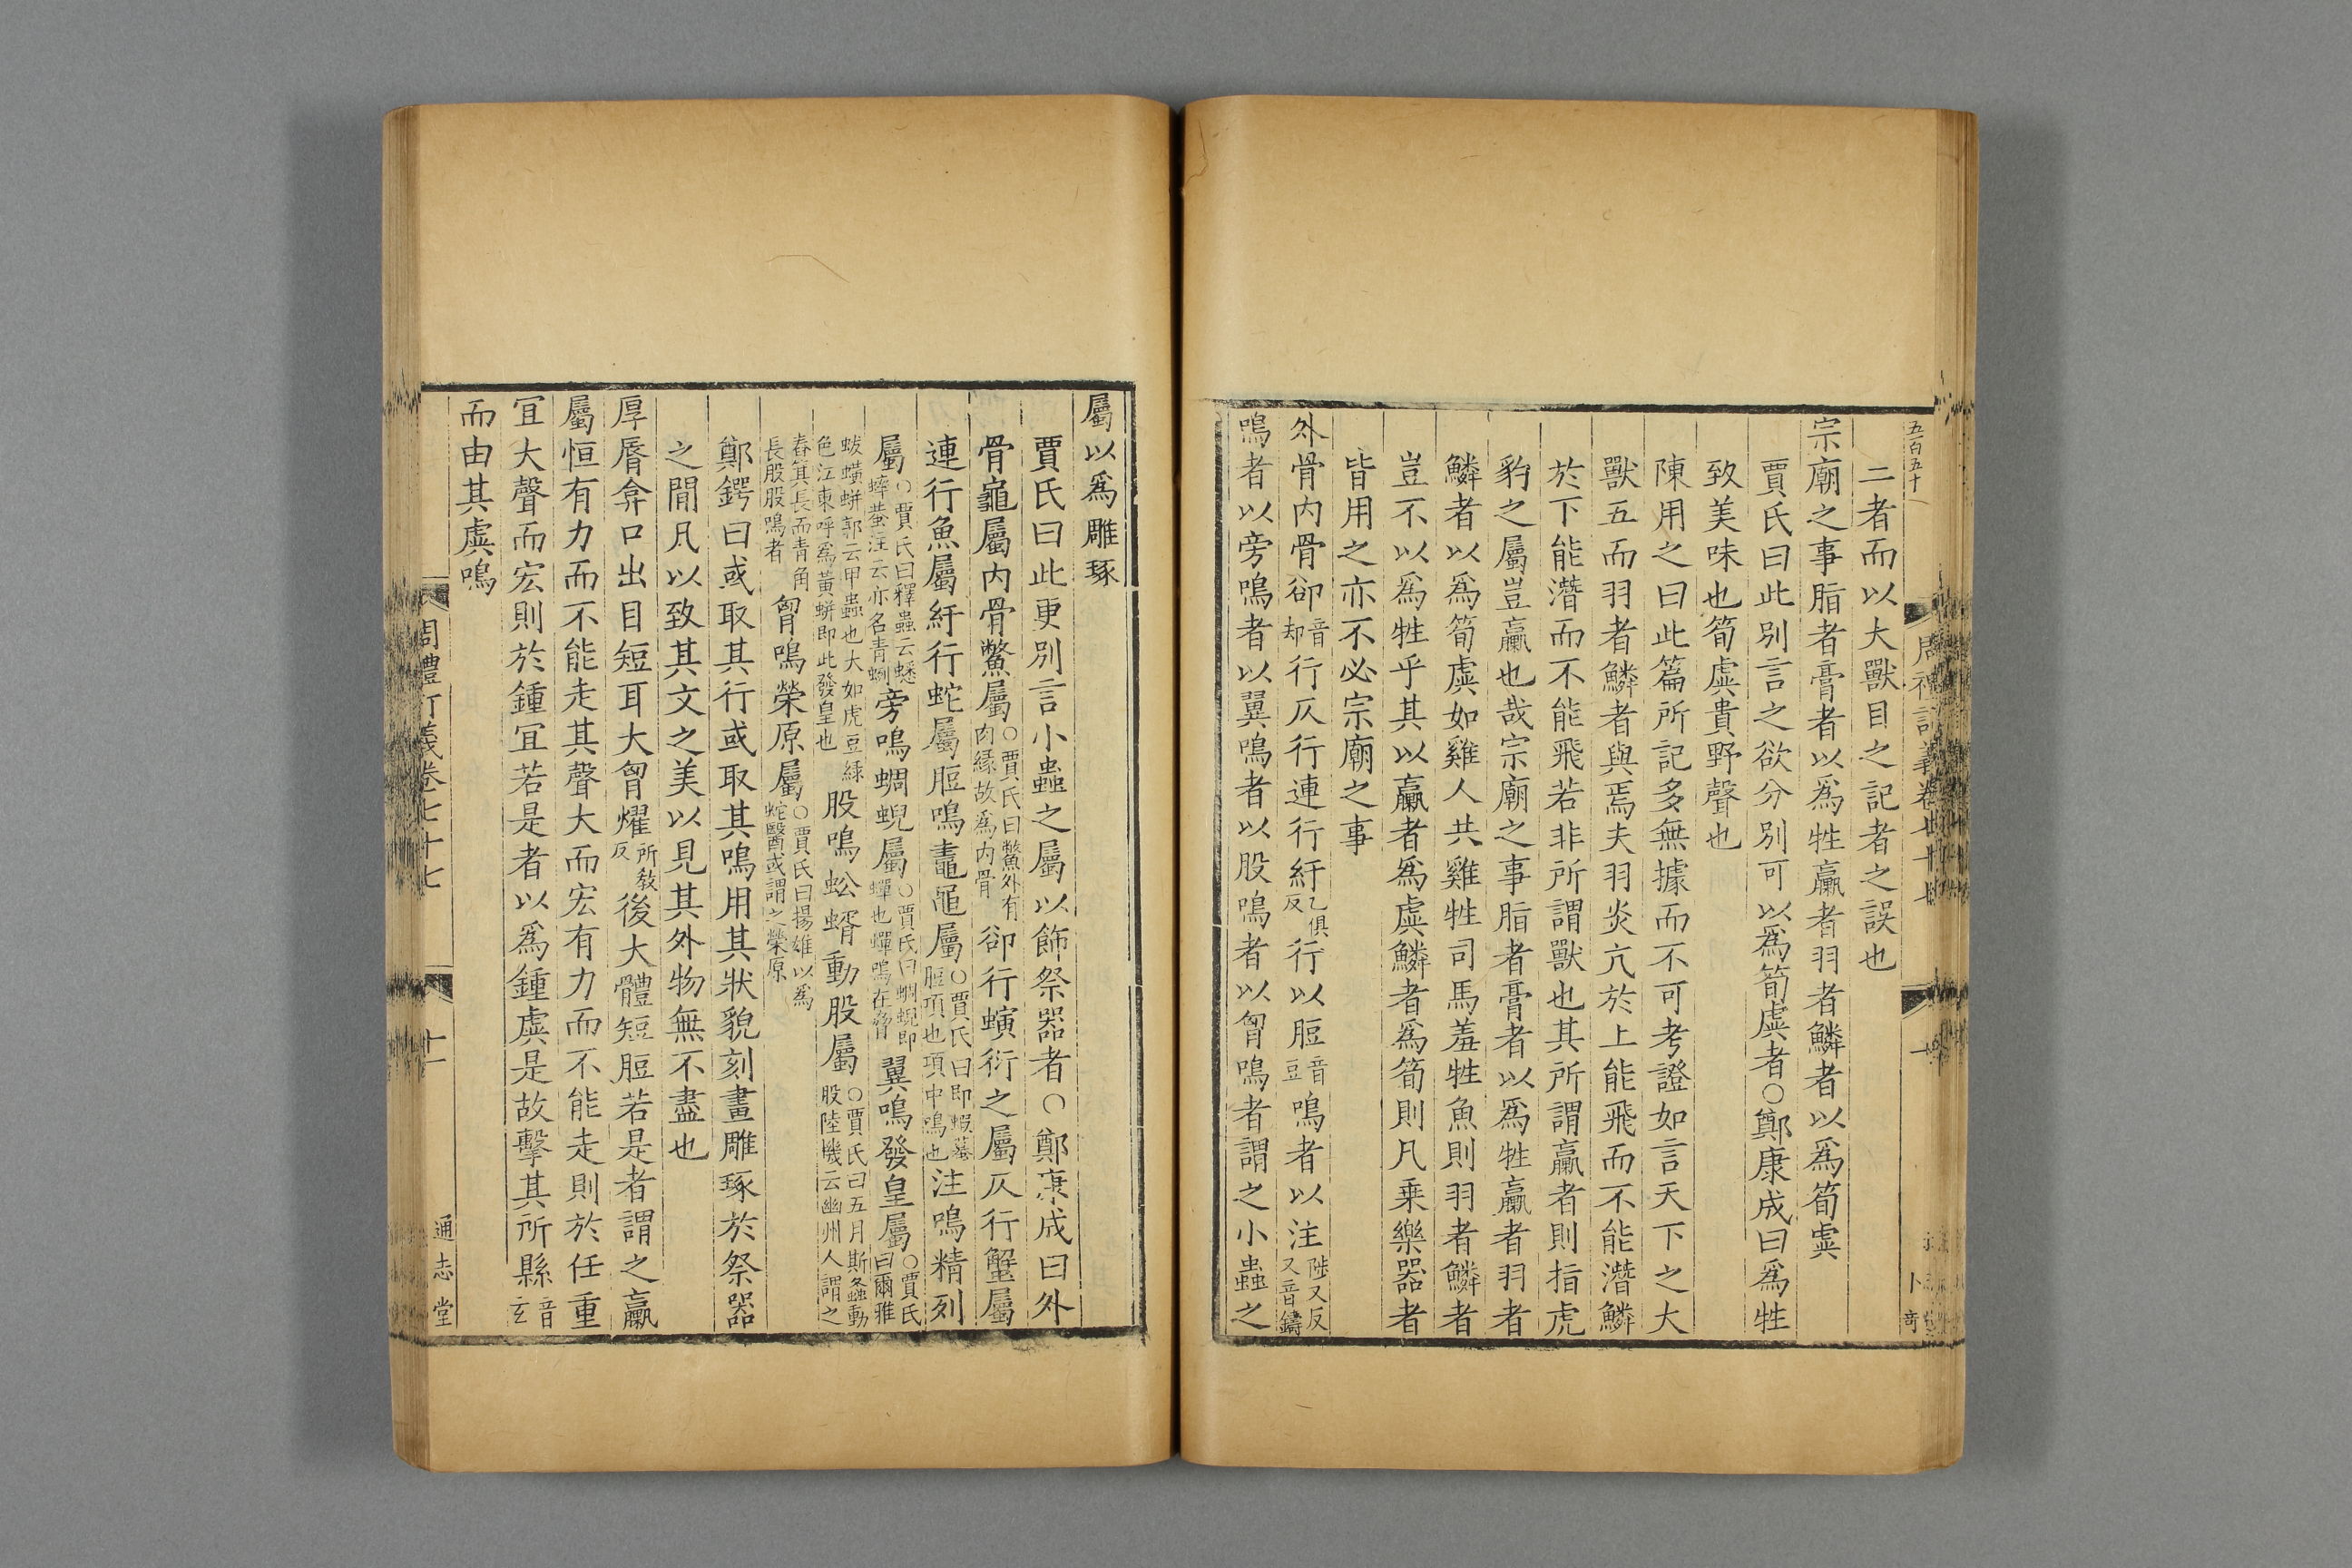 五百五十
二者而以大獸目之記者之誤也
宗廟之事脂者膏者以爲牲臝者羽者鱗者以爲筍虡
賈氏曰此別言之欲分別可以爲筍虡者○鄭康成曰爲牲
致美味也筍虡貴野聲也
陳用之曰此篇所記多無據而不可考證如言天下之大
獸五而羽者鱗者與焉夫羽炎亢於上能飛而不能潛鱗
於下能潛而不能飛若非所謂獸也其所謂臝者則指虎
豹之屬豈臝也哉宗廟之事脂者膏者以爲牲臝者羽者
鱗者以爲筍虡如雞人共雞牲司馬羞牲魚則羽者鱗者
豈不以爲牲乎其以臝者爲虡鱗者爲筍則凡乘樂器者
皆用之亦不必宗廟之事
外骨内骨卻音却行仄行連行紆乙俱反行以脰音豆鳴者以注陟又反又音鑄
鳴者以旁鳴者以翼鳴者以股鳴者以胷鳴者謂之小蟲之
屬以爲雕琢
賈氏曰此更別言小蟲之屬以飾祭器者○鄭康成曰外
骨龜屬内骨鱉屬○賈氏曰鱉外有肉緣故爲内骨卻行螾衍之屬仄行蟹屬
連行魚屬紆行蛇屬脰鳴鼃黽屬○賈氏曰即蝦蟇脰項也項中鳴也注鳴精列
屬○賈氏曰釋蟲云蟋蟀蛬注云亦名青蛚旁鳴蜩蜺屬○賈氏曰蜩蜺即蟬也蟬鳴在脅翼鳴發皇屬○賈氏曰爾雅
蛂蟥蛢郭云甲蟲也大如虎豆緑色江東呼爲黃蛢即此發皇也股鳴蚣蝑動股屬○賈氏曰五月斯螽動股陸機云幽州人謂之
舂箕長而青角長股股鳴者胷鳴榮原屬○賈氏曰揚雄以爲蛇醫或謂之榮原
鄭鍔曰或取其行或取其鳴用其狀貌刻畫雕琢於祭器
之閒凡以致其文之美以見其外物無不盡也
厚脣弇口出目短耳大胷燿所教反後大體短脰若是者謂之臝
屬恒有力而不能走其聲大而宏有力而不能走則於任重
宜大聲而宏則於鍾宜若是者以爲鍾虡是故擊其所縣音玄
而由其虡鳴
周禮訂義卷七十七
十一
通志堂